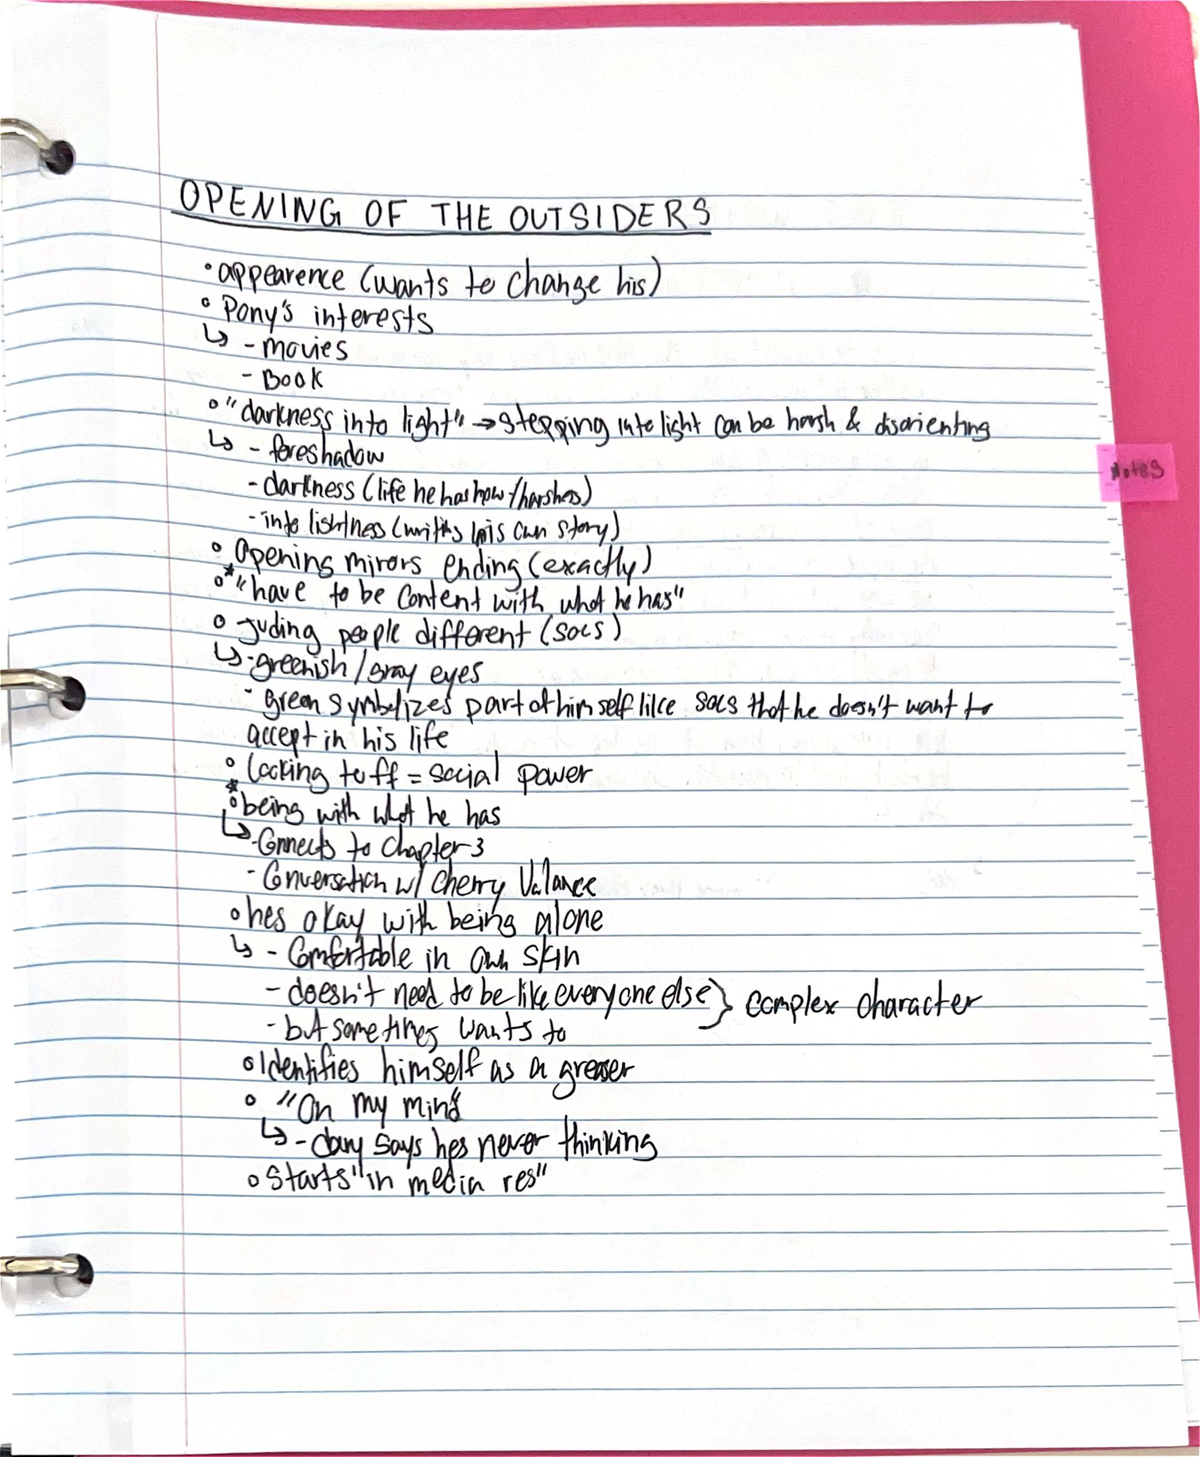 OPENING OF THE OUTSIDERS
• appearence (wants to change his)
• Pony's interests
↳ - movies
- Book
• "darkness into light" → stepping into light can be harsh & disorienting
↳ - foreshadow
- darkness (life he has now/harshes)
- into lightness (writhes his own story)
• Opening mirors ending (exactly)
•* "have to be content with what he has"
• Juding people different (socs)
↳ - greenish/gray eyes
- green symbolizes part of himself like socs that he doesn't want to
accept in his life
• Looking tuff = social power
*• being with what he has
↳ - Connects to Chapter 3
- Conversation w/ Cherry Valance
• hes okay with being alone
↳ - Comfortable in own skin
- doesn't need to be like everyone else } complex character
- but sometimes wants to
• Identifies himself as a greaser
• "On my mind"
↳ - dary says hes never thinking
• Starts "in media res"
Notes